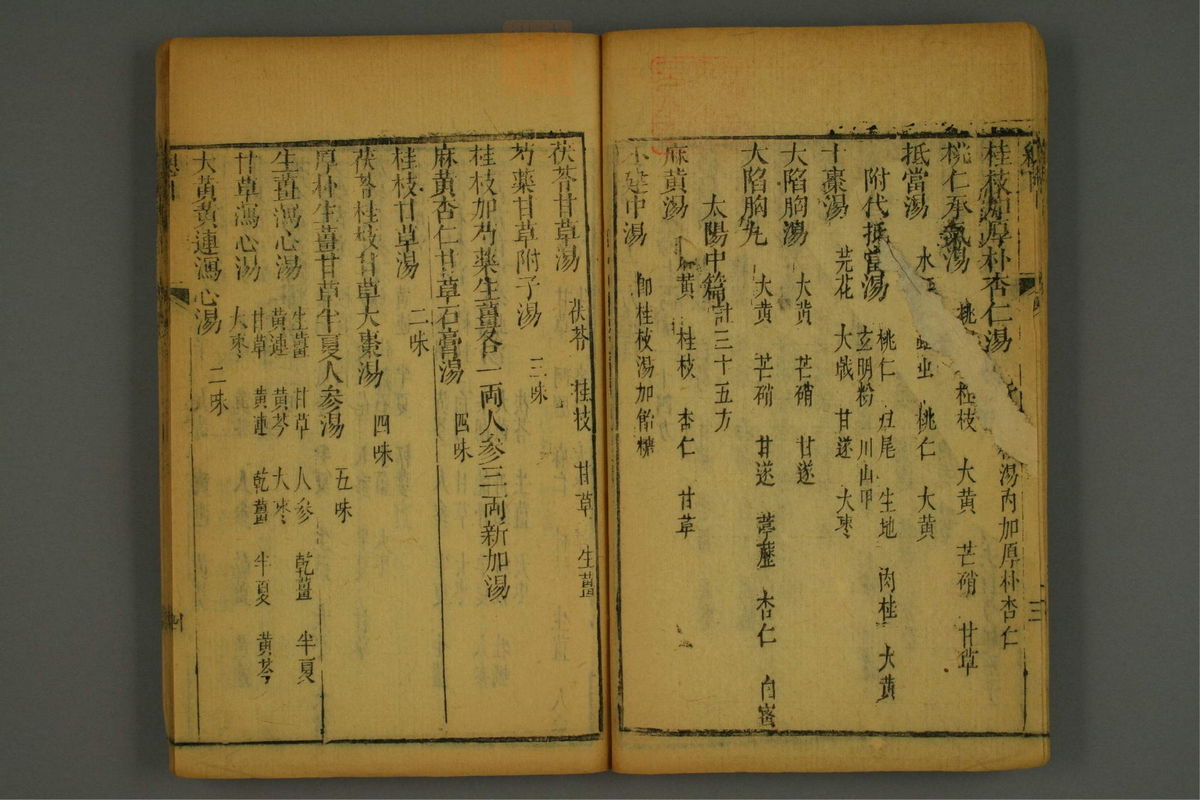 桂枝加厚朴杏仁湯 湯內加厚朴杏仁
桃仁承氣湯 桃 桂枝 大黃 芒硝 甘草
抵當湯 水 虫 桃仁 大黃
附代抵當湯 桃仁 尾 生地 肉桂 大黃
玄明粉 川山甲
十棗湯 芫花 大戟 甘遂 大枣
大陷胸湯 大黃 芒硝 甘遂
大陷胸丸 大黃 芒硝 甘遂 葶藶 杏仁 白蜜
太陽中篇計三十五方
麻黃湯 黃 桂枝 杏仁 甘草
小建中湯 卽桂枝湯加飴糖
茯苓甘草湯 茯苓 桂枝 甘草 生薑
芍藥甘草附子湯 三味
桂枝加芍藥生薑各一兩人參三兩新加湯
麻黃杏仁甘草石膏湯 四味
桂枝甘草湯 二味
茯苓桂枝甘草大棗湯 四味
厚朴生薑甘草半夏人參湯 五味
生薑瀉心湯 生薑 甘草 人參 乾薑 半夏
黃連 黃芩 大枣
甘草瀉心湯 甘草 黃連 乾薑 半夏 黃芩
大枣
大黃黃連瀉心湯 二味